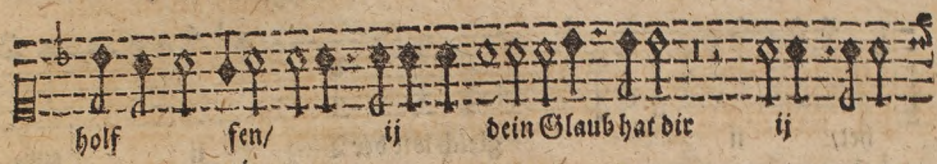 holf fen/ ij dein Glaub hat dir ij